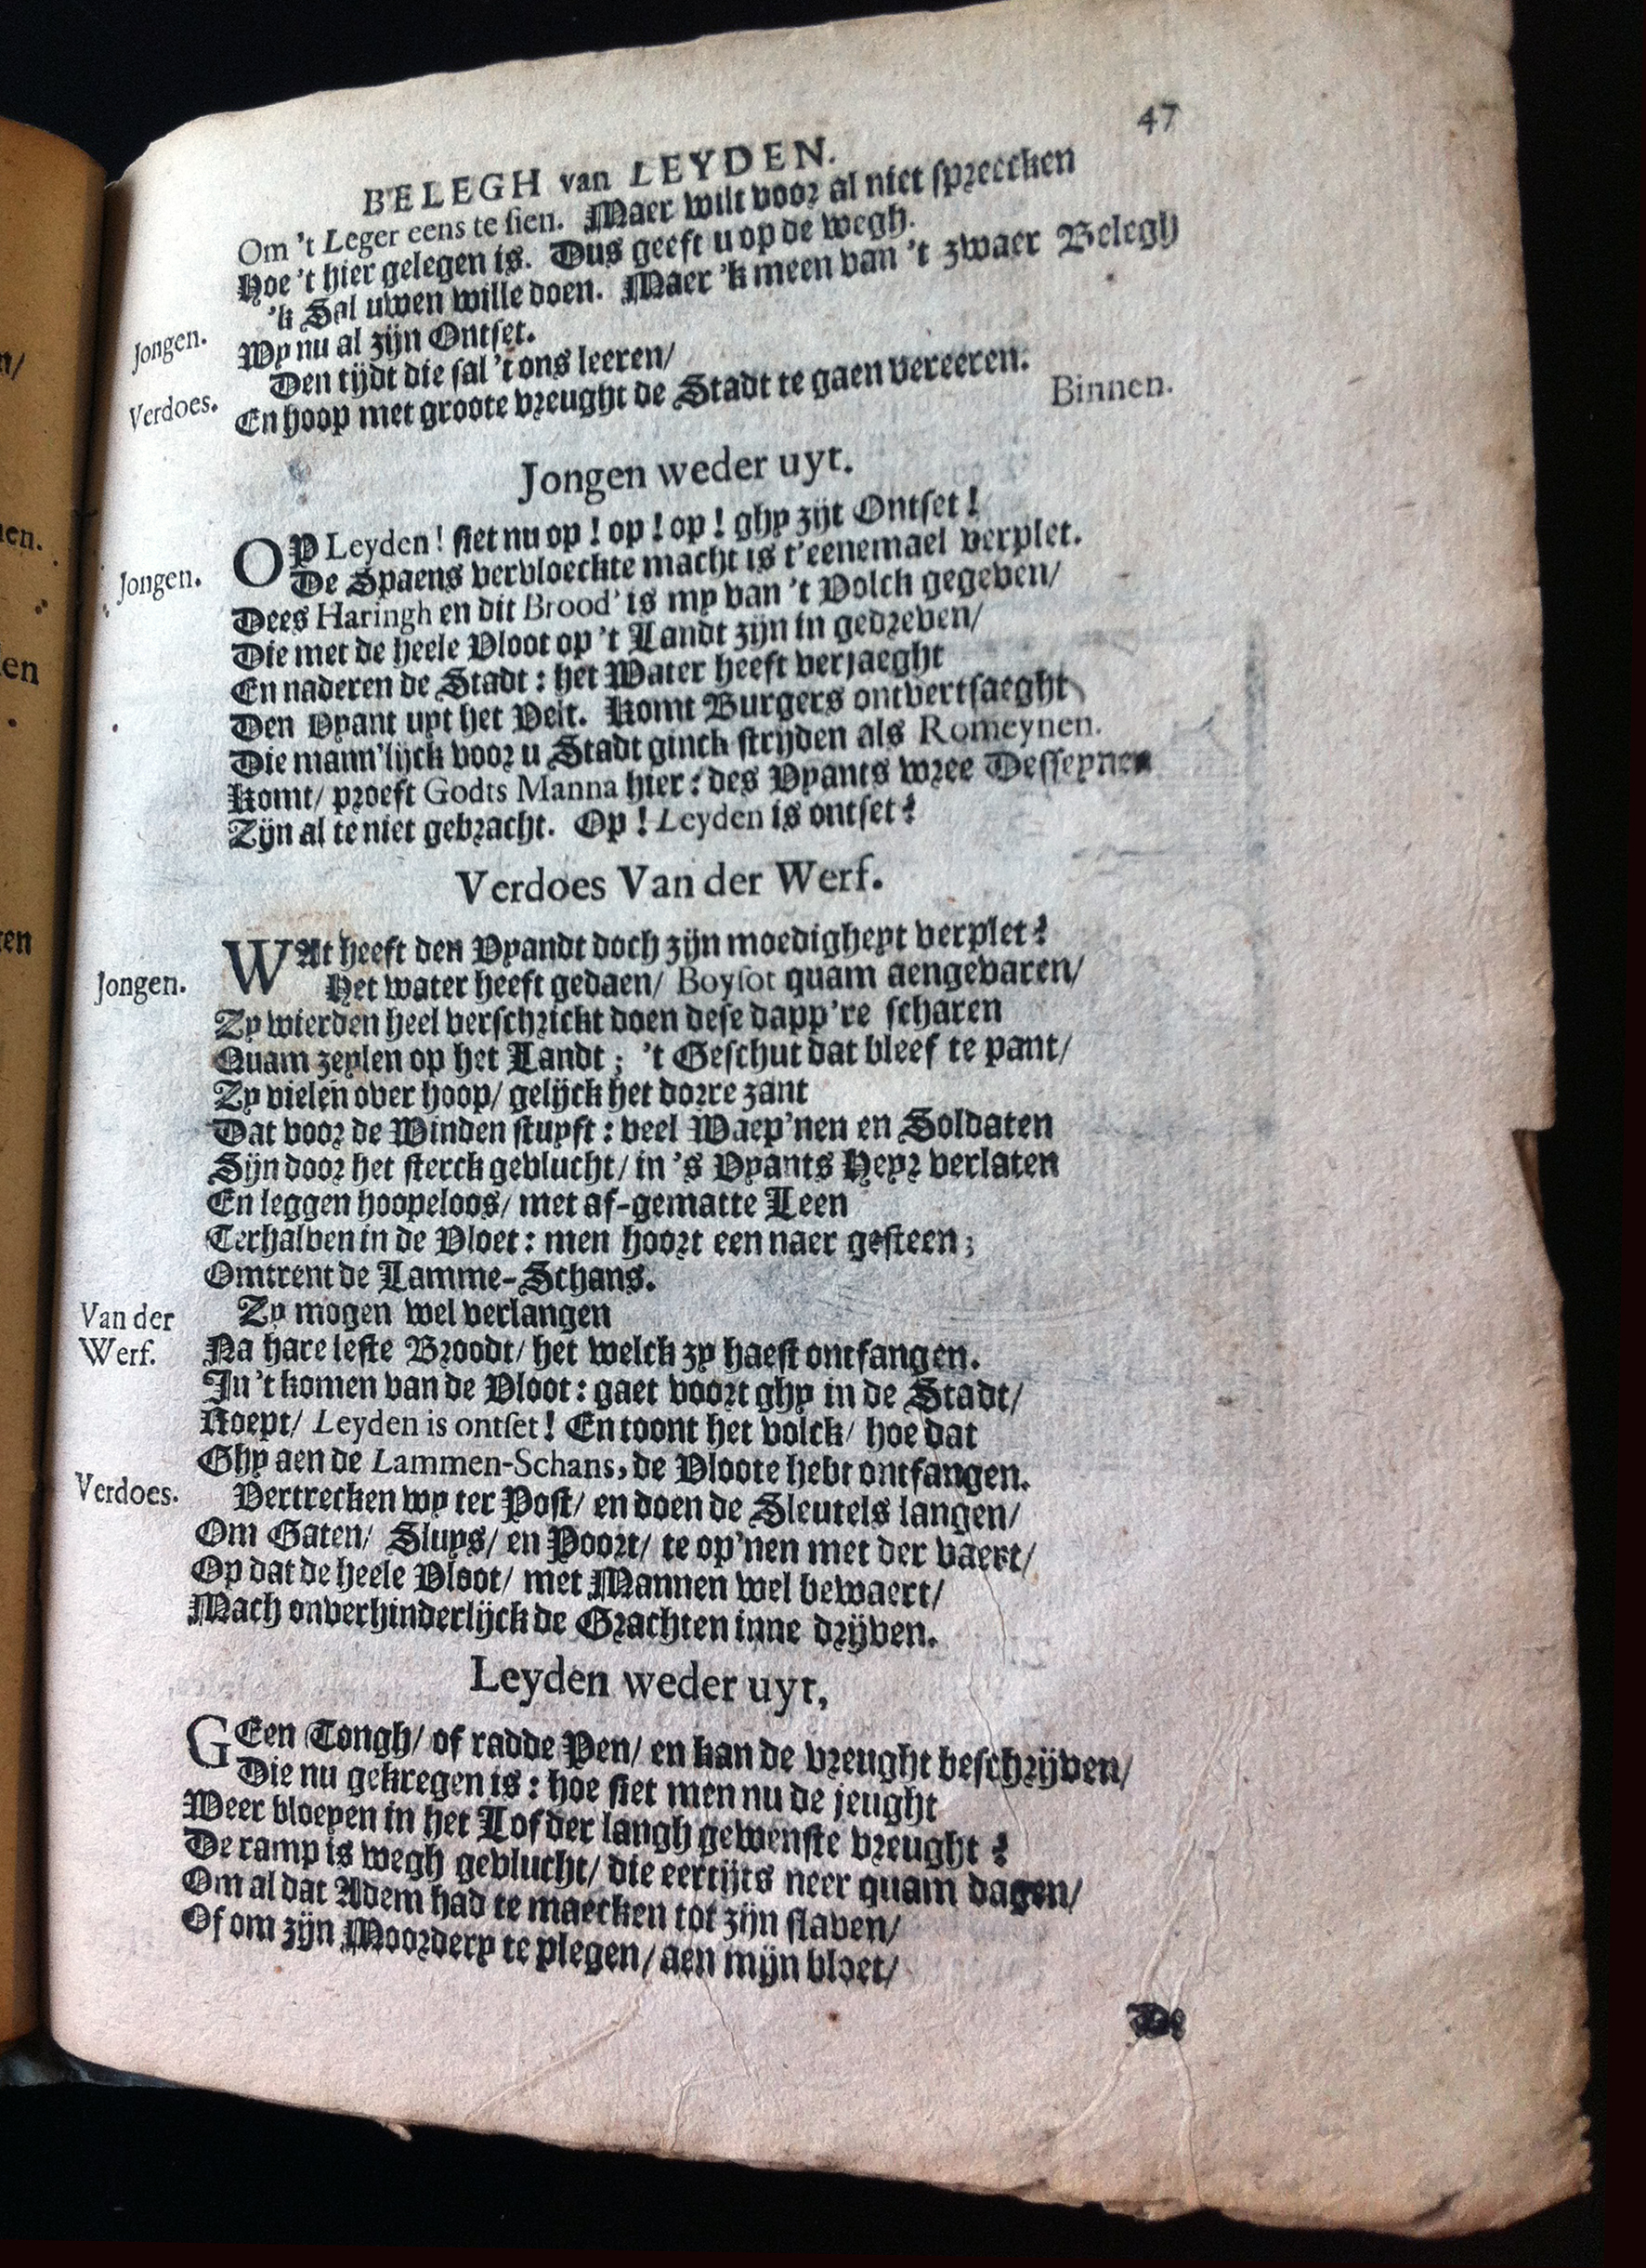 47
BELEGH van LEYDEN.
Om 't Leger eens te sien. Maer wilt voor al niet spreecken
Hoe 't hier gelegen is. Dus geeft u op de wegh.
Jongen. 'k Sal uwen wille doen. Maer 'k meen van 't zwaer Belegh
Wy nu al zijn Ontset.
Verdoes. Den tijdt die sal 't ons leeren/
En hoop met groote vreught de Stadt te gaen vereeren.
Binnen.
Jongen weder uyt.
Jongen. OP Leyden! siet nu op! op! op! ghy zijt Ontset!
De Spaens vervloeckte macht is t'eenemael verplet.
Dees Haringh en dit Brood' is my van 't Volck gegeven/
Die met de heele Vloot op 't Landt zijn in gedreven/
En naderen de Stadt: het Water heeft verjaeght
Den Vyant uyt het Velt. Komt Burgers ontvertsaeght
Die mann'lijck voor u Stadt ginck strijden als Romeynen.
Komt/ proeft Godts Manna hier: des Vyants wree Desseynen
Zijn al te niet gebracht. Op! Leyden is ontset!
Verdoes Van der Werf.
WAt heeft den Vyandt doch zijn moedigheyt verplet?
Jongen. Het water heeft gedaen/ Boysot quam aengevaren/
Zy wierden heel verschrickt doen dese dapp're scharen
Quam zeylen op het Landt; 't Geschut dat bleef te pant/
Zy vielen over hoop/ gelijck het dorre zant
Dat voor de Winden stuyft: veel Waep'nen en Soldaten
Sijn door het sterck gevlucht/ in 's Vyants Heyr verlaten
En leggen hoopeloos/ met af-gematte Leen
Terhalven in de Vloet: men hoort een naer gesteen;
Omtrent de Lamme-Schans.
Van der Werf. Zy mogen wel verlangen
Na hare leste Broodt/ het welck zy haest ontfangen.
In 't komen van de Vloot: gaet voort ghy in de Stadt/
Roept/ Leyden is ontset! En toont het volck/ hoe dat
Ghy aen de Lammen-Schans, de Vloote hebt ontfangen.
Verdoes. Vertrecken wy ter Post/ en doen de Sleutels langen/
Om Gaten/ Sluys/ en Poort/ te op'nen met der vaert/
Op dat de heele Vloot/ met Mannen wel bewaert/
Mach onverhinderlijck de Grachten inne drijven.
Leyden weder uyt,
GEen Tongh/ of radde Pen/ en kan de vreught beschrijven/
Die nu gekregen is: hoe siet men nu de jeught
Weer bloeyen in het Lof der langh gewenste vreught?
De ramp is wegh gevlucht/ die eertijts neer quam dagen/
Om al dat Adem had te maecken tot zijn slaven/
Of om zijn Moordery te plegen/ aen mijn bloet/
De